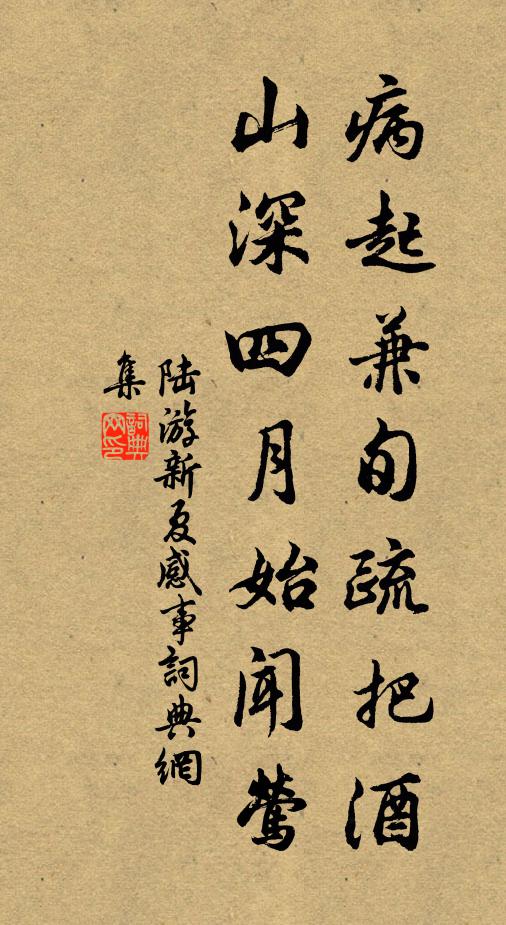 病起兼旬疏把酒
山深四月始闻莺
陆游新夏感事詞典網
集
詞典網印